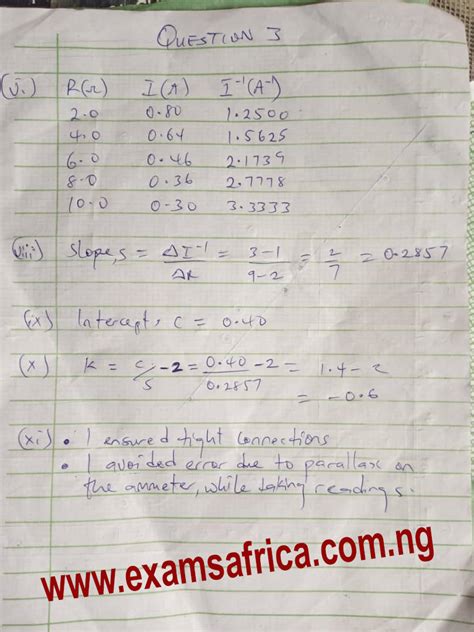 QUESTION 3
(v.) R(Ω) I(A) I⁻¹(A⁻¹)
2.0 0.80 1.2500
4.0 0.64 1.5625
6.0 0.46 2.1739
8.0 0.36 2.7778
10.0 0.30 3.3333
(viii) Slope, s = ΔI⁻¹/ΔR = 3-1/9-2 = 2/7 = 0.2857
(ix) Intercept, c = 0.40
(x) K = c/s - 2 = 0.40/0.2857 - 2 = 1.4 - 2
= -0.6
(xi) • I ensured tight connections
• I avoided error due to parallax on
the ammeter, while taking readings.
www.examsafrica.com.ng